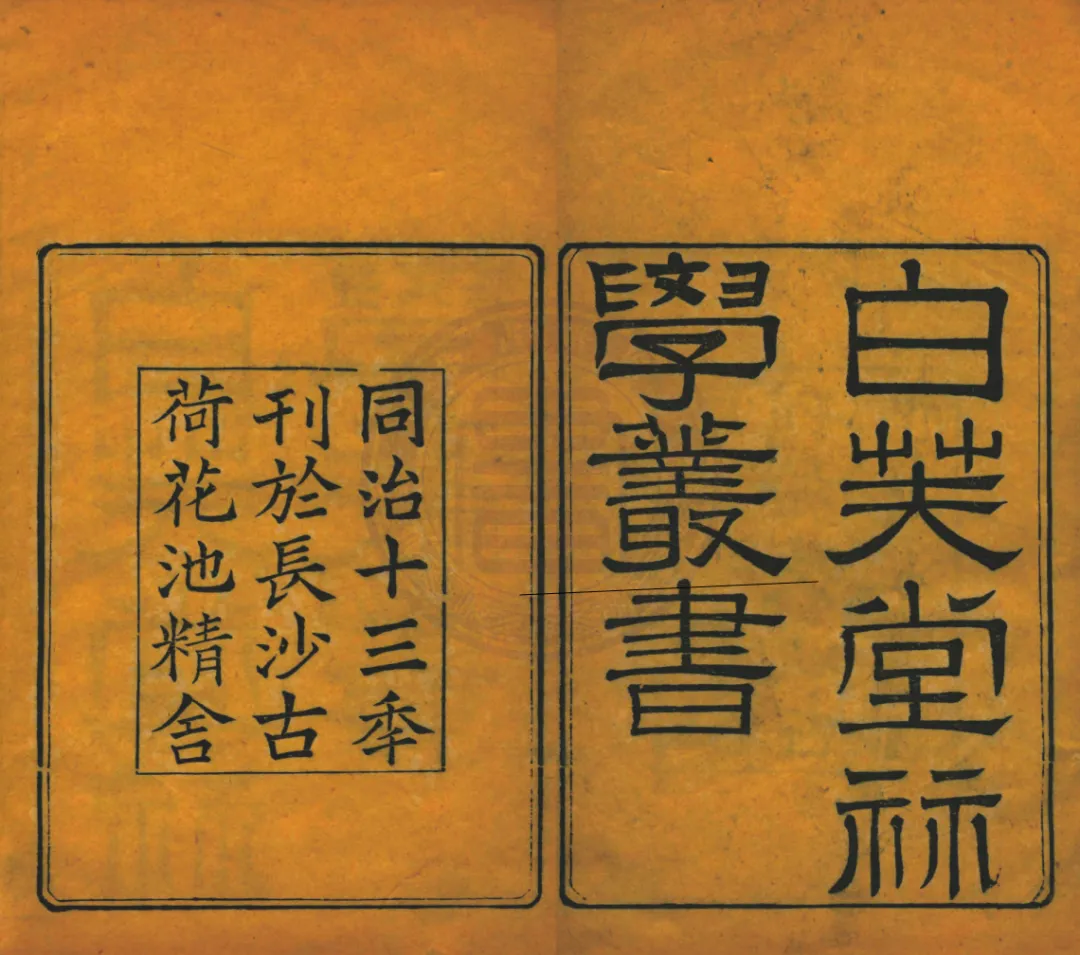 白芙堂祘
學叢書
同治十三秊
刊於長沙古
荷花池精舍